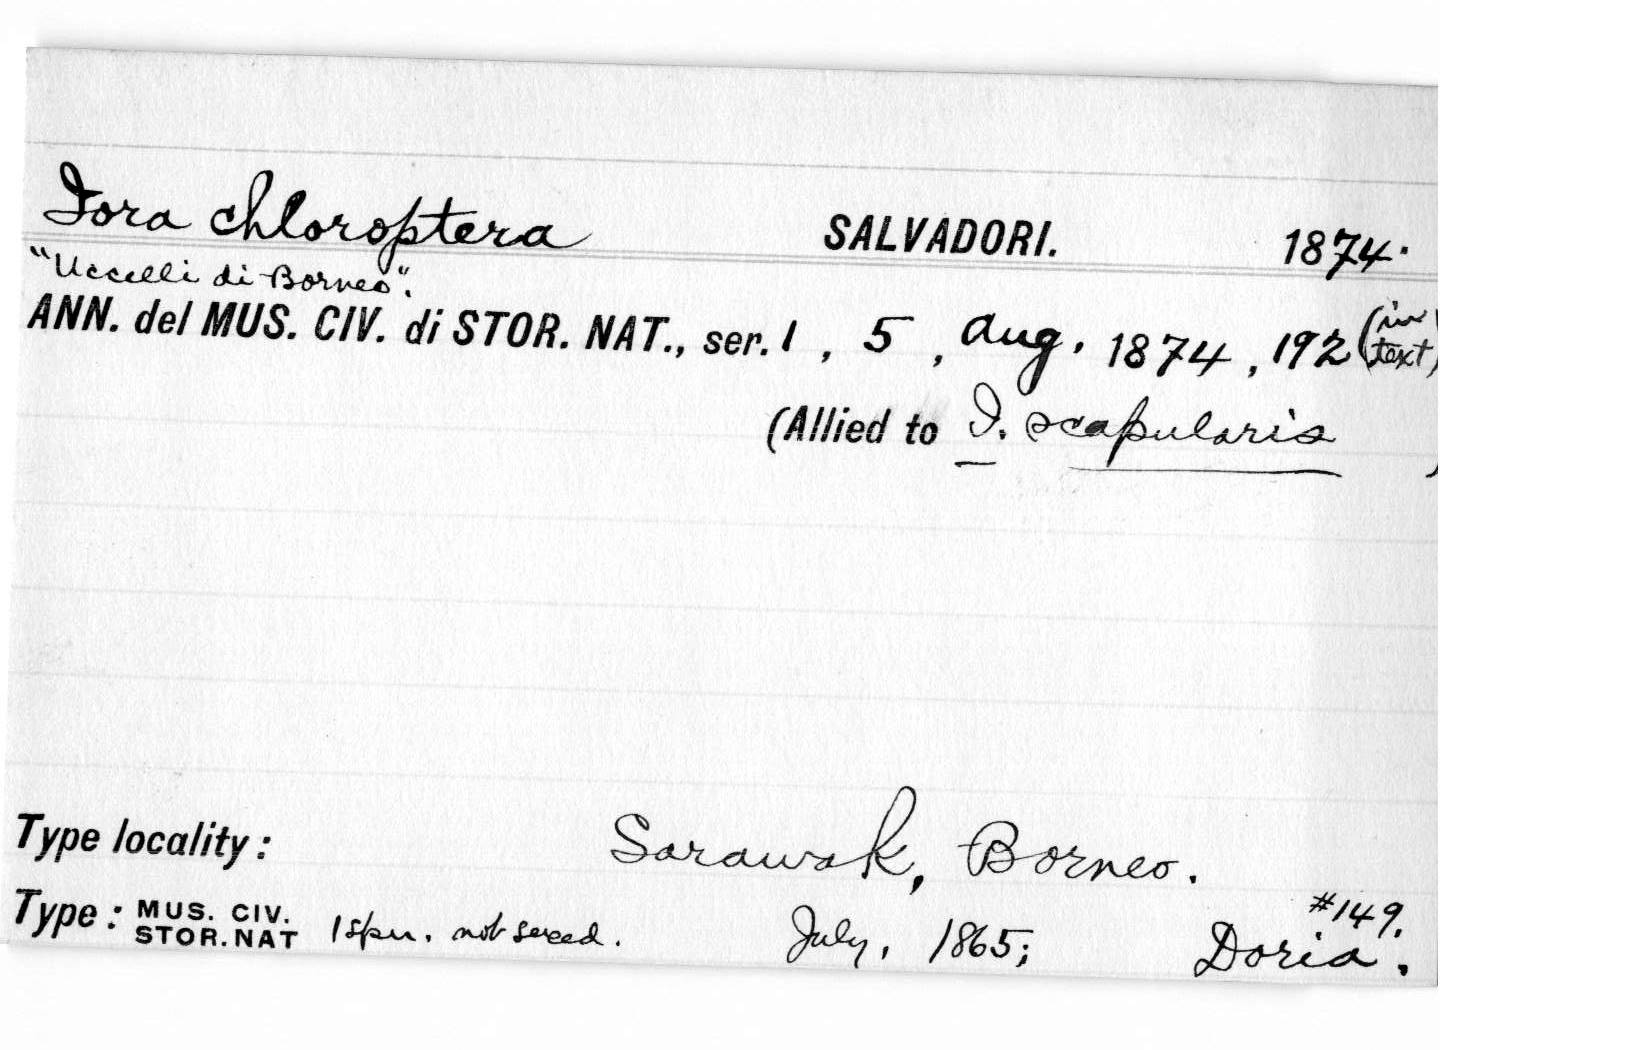 Iora chloroptera SALVADORI. 1874.
"Uccelli di Borneo".
ANN. del MUS. CIV. di STOR. NAT., ser. 1, 5, Aug. 1874, 192 (in text)
(Allied to I. scapularis )
Type locality: Sarawak, Borneo.
Type: MUS. CIV. STOR. NAT 1 spm. not sexed. July, 1865; #149. Doria.